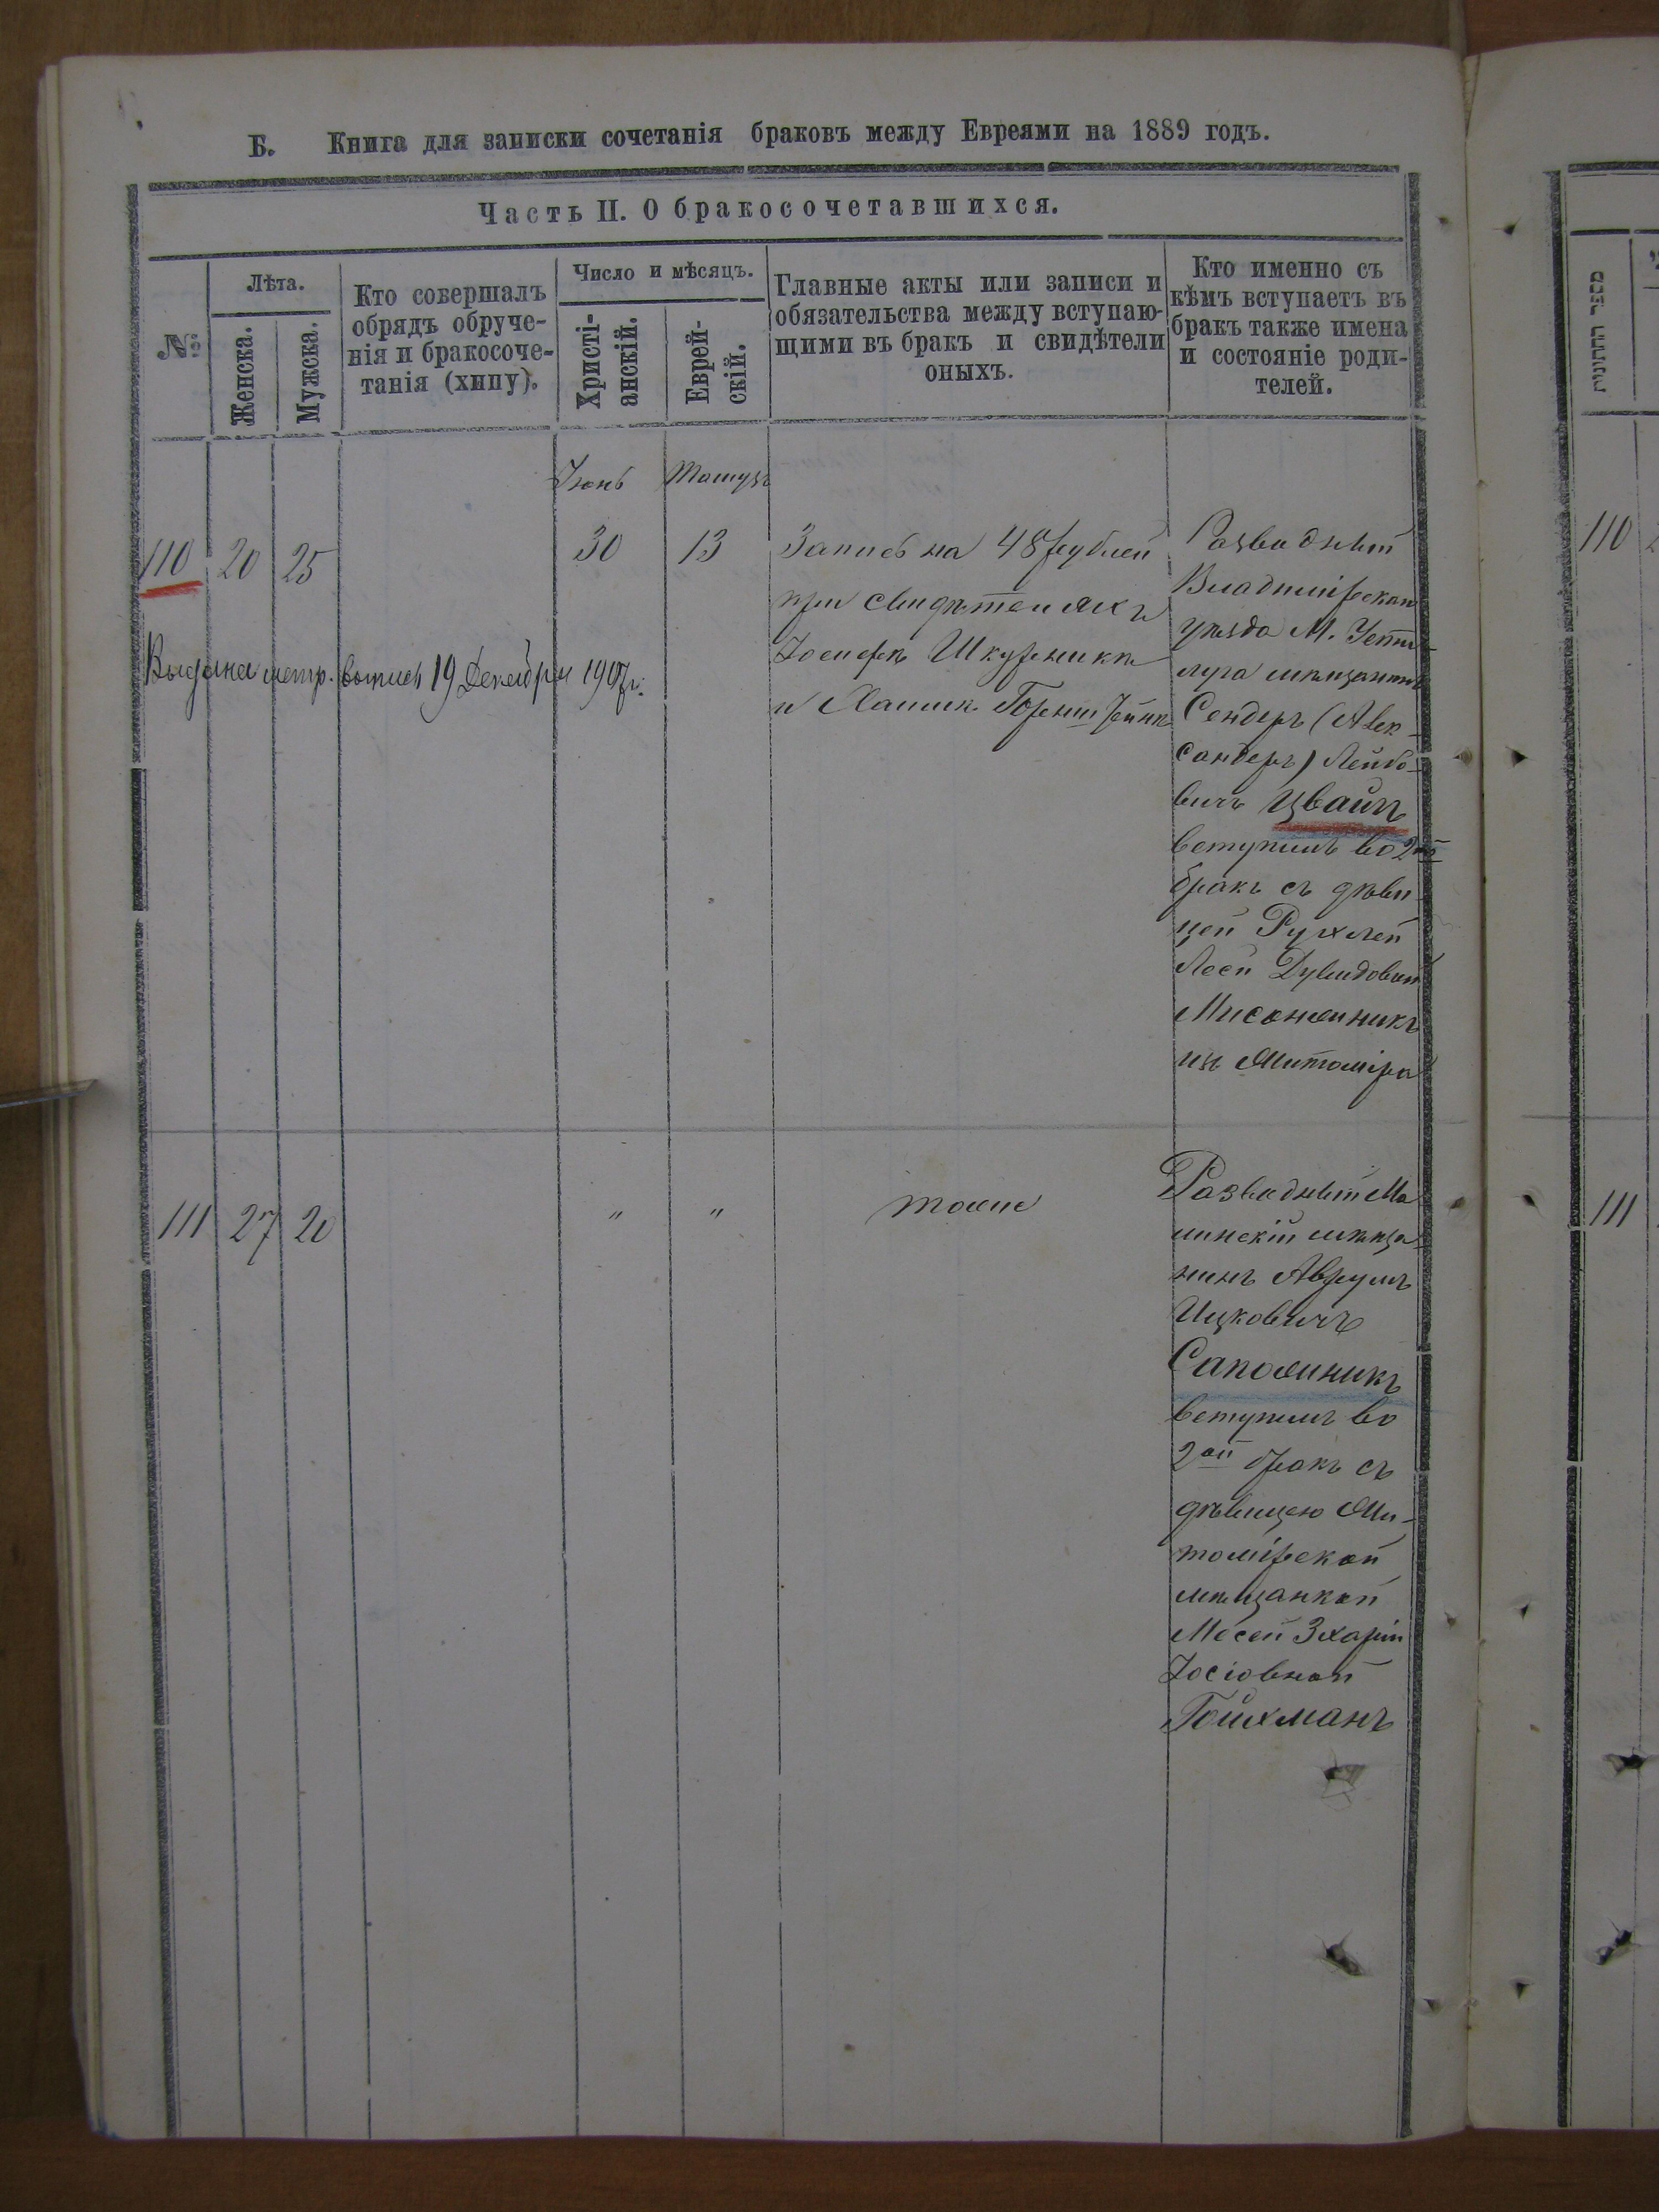 Б. Книга для записки сочетанія браковъ между Евреями на 1889 годъ.
Часть II. О бракосочетавшихся.
№
Лѣта.
Женска.
Мужска.
Кто совершалъ
обрядъ обруче-
нія и бракосоче-
танія (хипу).
Число и мѣсяцъ.
Христі-
анскій.
Еврей-
скій.
Главные акты или записи и
обязательства между вступаю-
щими въ бракъ и свидѣтели
оныхъ.
Кто именно съ
кѣмъ вступаетъ въ
бракъ также имена
и состояніе роди-
телей.
מספר החתונות
Іюнь Тамузъ
110 20 25 30 13
Запись на 48 рублей
при свидѣтеляхъ
Іосифѣ Шкурникѣ
и Хаимѣ
Выдана метр. выпись 19 Декабря 1907г.
Разводный
Владимірскаго
уѣзда М. Усти-
луга мѣщанинъ
Сендеръ (Алек-
сандеръ) Лейбо-
вичъ Цвайгъ
вступилъ во 2ой
бракъ съ дѣви-
цей Рухлей
Леей Дувидовной
из Житоміра
111 27 20 " " тоже
Разводный
мѣща-
нинъ Аврумъ
Ицковичъ
Сапожникъ
вступилъ во
2ой бракъ съ
дѣвицею Жи-
томірской
мѣщанкой
Іосіовной
Гойхманъ
110
111